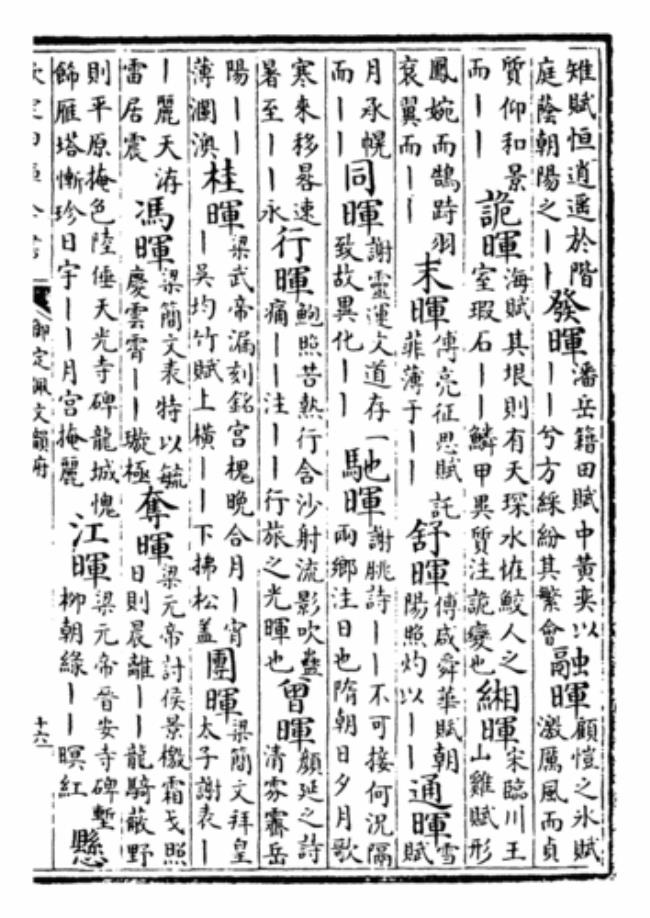 雉賦恒逍遥於階
庭蔭朝陽之｜｜
發暉
潘岳籍田賦中黄奕以
｜｜兮方綵紛其繁會
融暉
顧愷之氷賦
激厲風而貞
質仰和景
而｜｜
詭暉
海賦其垠則有天琛水怪鮫人之
室瑕石｜｜鱗甲異質注詭變也
緗暉
宋臨川王
山雞賦形
鳳婉而鵠跱羽
衰翼而｜｜
末暉
傅亮征思賦託
菲薄于｜｜
舒暉
傅咸舜華賦朝
陽照灼以｜｜
通暉
雪
賦
月承幌
而｜｜
同暉
謝靈運文道存一
致故異化｜｜
馳暉
謝朓詩｜｜不可接何況隔
兩鄉注日也隋朝日夕月歌
寒來移晷速
暑至｜｜永
行暉
鮑照苦熱行含沙射流影吹蠱
痛｜｜注｜｜行旅之光暉也
曾暉
顔延之詩
清雰霽岳
陽｜｜
薄瀾澳
桂暉
梁武帝漏刻銘宫槐晚合月｜宵
｜吳均竹賦上横｜｜下拂松蓋
團暉
梁簡文拜皇
太子謝表｜
｜麗天洊
雷居震
馮暉
梁簡文表特以毓
慶雲霄｜｜璇極
奪暉
梁元帝討侯景檄霜戈照
日則晨離｜｜龍騎蔽野
則平原掩色陸倕天光寺碑龍城愧
飾雁塔慚珍日宇｜｜月宫掩麗
江暉
梁元帝晉安寺碑塹
柳朝緑｜｜暝紅
懸
御定佩文韻府
十六